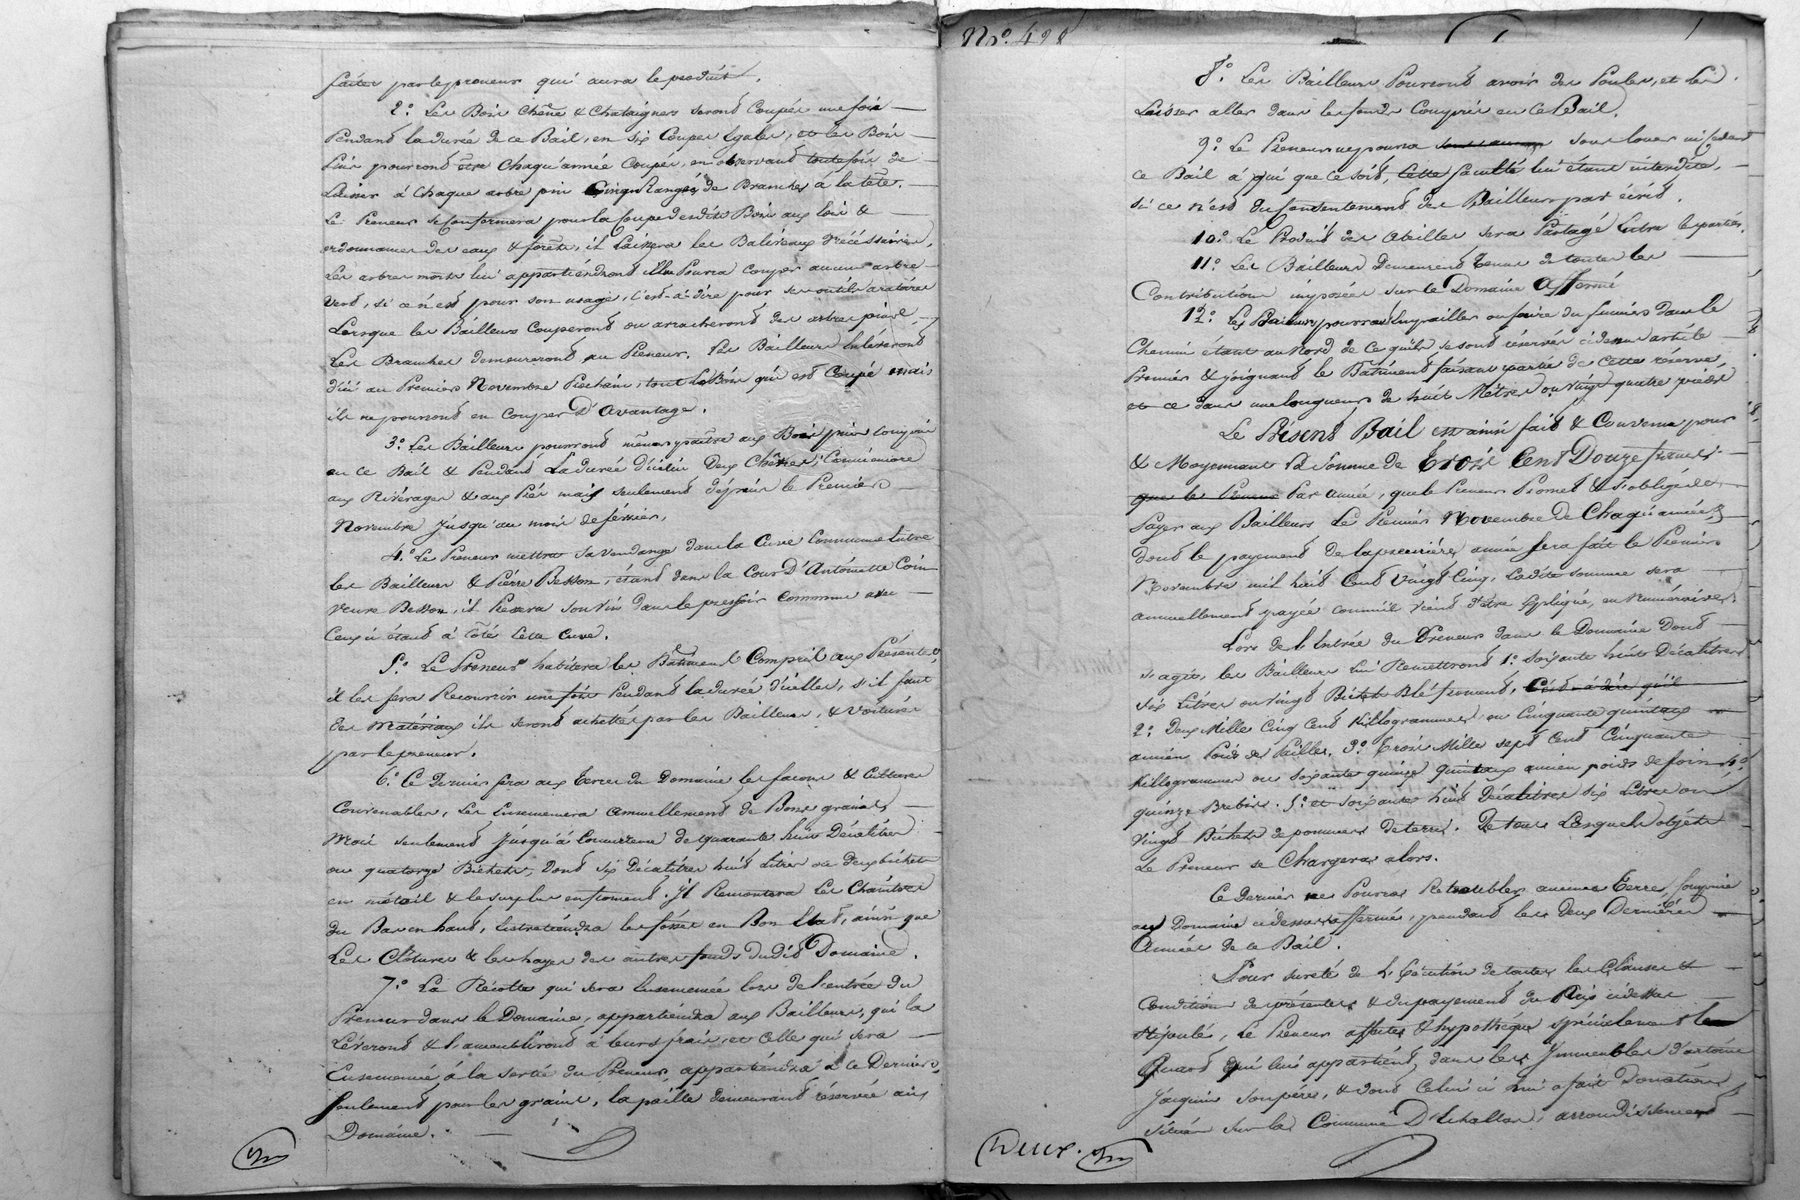 faites par le preneur qui aura le produit.
2.° Les Bois Chêne & Chataigners seront Coupés une fois
Pendant la durée de ce Bail, en six Coupes Egales, et les Bois
Pins pourront être Chaqu'année Coupés, en observant toutefois de
Laisser à Chaque arbre pin Cinq Rangés de Branches à la tête.
Le Preneur se Conformera pour la Coupe desdits Bois aux lois &
ordonnances des eaux & forêts, il Laissera les Baliveaux Nécéssaires,
Les arbres morts lui appartiendront il ne Pourra Couper aucun arbre
Verd, si ce n'est pour son usage, C'est-à-dire pour ses outils aratoires
Lorsque les Bailleurs Couperont ou arracheront des arbres pins,
Les Branches demeureront au Preneur. Les Bailleurs Enleveront
D'ici au Premier Novembre Prochain, tout Le Bois qui est Coupé mais
ils ne pourront en Couper D'Avantage.
3.° Les Bailleurs pourront mener paître aux Bois pins Compris
en ce Bail & Pendant La durée d'icelui Deux Chèvres, Comme encore
aux Rivérages & aux Prés mais seulement depuis le Premier
Novembre Jusqu'au mois de février.
4.° Le Preneur mettra sa vendange dans la Cuve Commune Entre
les Bailleurs & Pierre Besson, étant dans la Cour D'Antoinette Coin
Veuve Besson, il Pressera son Vin dans le pressoir Commun avec
Ceux-ci étant à Côté Cette Cuve.
5.° Le Preneur habitera les Batiment Compris aux Présentes,
il les fera Recouvrir une fois Pendant la durée d'icelles, s'il faut
des Matériaux ils seront achettés par les Bailleurs, & Voiturés
par le preneur.
6.° Ce Dernier fera aux Terres du Domaine les façons & Cultures
Convenables, Les Ensemencera annuellement de Bons grains,
Mais seulement Jusqu'à Concurrence de quarante huit Décalitres
ou quatorze Bichets, Dont six Décalitres huit Litres ou Deux bichets
en méteil & le surplus en froment. Il Remontera Les Chaintres
du Bas en haut, Entretiendra les fossés en Bon Etat, ainsi que
Les Clôtures & les hayes des autres fonds dudit Domaine.
7.° La Récolte qui sera Ensemencée lors de l'entrée du
Preneur dans le Domaine, appartiendra aux Bailleurs, qui la
Léveront & l'ameubliront à leurs frais, et Celle qui sera
Ensemencée à la sortie du Preneur, appartiendra à Ce Dernier,
seulement pour les grains, la paille demeurant réservée au
Domaine.
N.° 428
8.° Les Bailleurs Pourront avoir des Poules, et Les
Laisser aller dans les fonds Compris en Ce Bail.
9.° Le Preneur ne pourra sous aucun sous louer ni Ceder
ce Bail à qui que Ce soit, Cette faculté lui étant interdite,
si ce n'est du Consentement des Bailleurs par écrit.
10.° Le Produit des Abeilles sera Partagé Entre les parties.
11.° Les Bailleurs Demeurent Tenus de toutes les
Contributions imposées sur le Domaine Affermé
12.° Les Bailleurs pourront Empailler ou faire du fumier dans le
Chemin étant au Nord de Ce qu'ils se sont réservés cidessus article
Premier & joignant le Bâtiment faisant partie de cette réserve,
et ce dans une longueur de huit Mètres ou vingt quatre pieds
Le Présent Bail est ainsi fait & Convenu pour
& Moyennant La Somme de Trois Cent Douze francs
que le Preneur Par année, que le Preneur Promet & s'oblige de
Payer aux Bailleurs Le Premier Novembre de Chaqu'année,
dont le payement de la première année sera fait le Premier
Novembre mil huit Cent Vingt Cinq, Ladite somme sera
annuellement payée comme il vient d'être Expliqué, en Numéraires.
Lors de l'Entrée du Preneur dans le Domaine Dont
s'agit, les Bailleurs lui Remettront 1.° Soixante huit Décalitres
six Litres ou vingt Bichets Blé froment, C'est-à-dire qu'il
2.° Deux Mille Cinq Cent Killogrammes ou Cinquante quintaux
ancien Poids de Pailles. 3.° Trois Mille sept Cent Cinquante
Killogrammes ou soixante quinze quintaux ancien poids de foin 4.°
quinze Brebis. 5.° et soixante huit Décalitres six Litres ou
vingt Bichets de pommes de terre. De tous Lesquels objets
Le Preneur se Chargera alors.
Ce Dernier ne Pourra Retroubler aucune Terre, Comprise
au Domaine cidessus affermé, pendant les Deux Dernières
Années de ce Bail.
Pour sureté de L'Exécution de toutes les Clauses &
Condition des présentes & du payement du Prix cidessus
stipulés, Le Preneur affecte & hypothéque spécialement le
Quart qui lui appartient, dans les Immeubles d'Antoine
Jacquin son père, & dont Celui ci lui a fait Donation
situés sur la Commune D'Echallas, arrondissement
Deux.